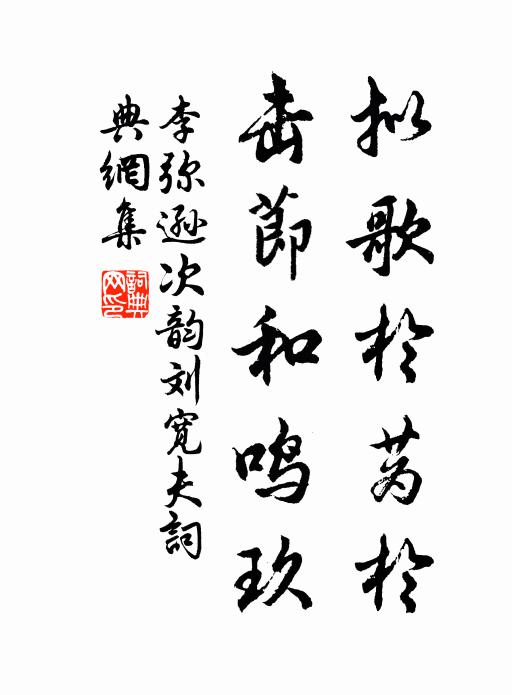 拟歌於芳於
击節和鸣玖
李弥遜次韵刘寬夫詞
典網集
詞典网印